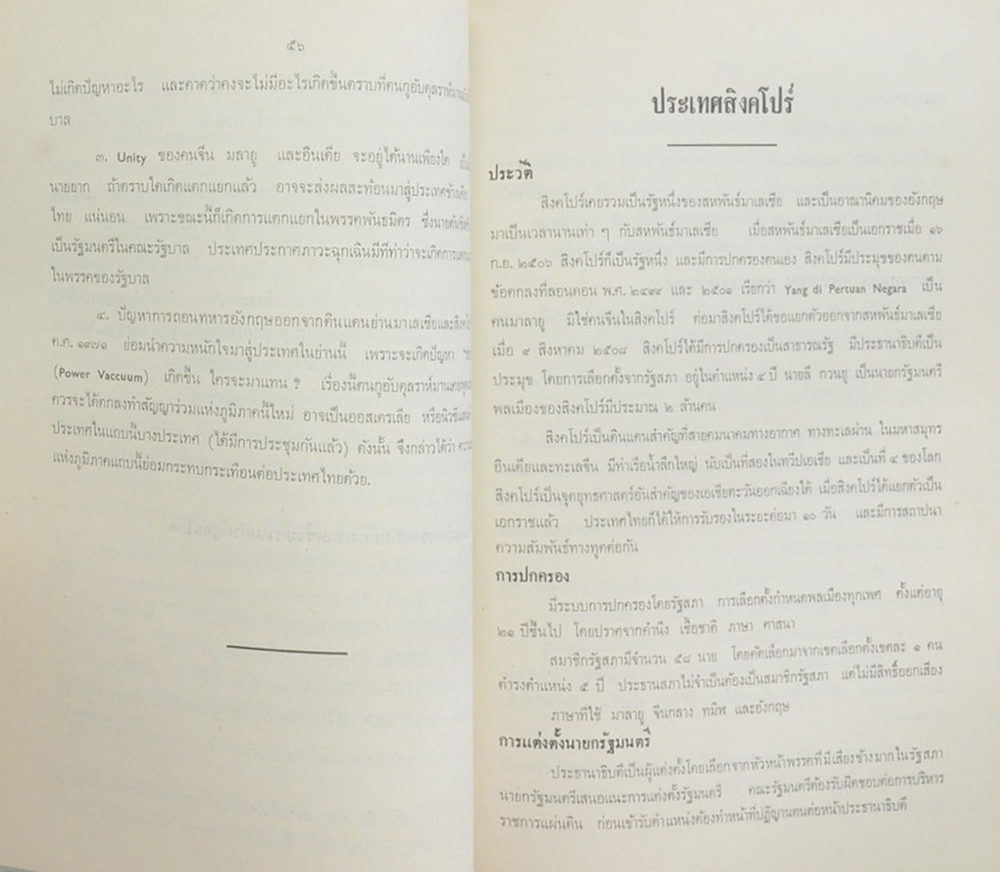 ๕๖
ไม่เกิดปัญหาอะไร และคาดว่าคงจะไม่มีอะไรเกิดขึ้นตราบที่ตนกูอับดุลราห์มาน
บาล
๓. Unity ของคนจีน มลายู และอินเดีย จะอยู่ได้นานเพียงใด
นายยาก ถ้าตราบใดเกิดแตกแยกแล้ว อาจจะส่งผลสะท้อนมาสู่ประเทศข้างเคียง
ไทย แน่นอน เพราะขณะนี้ก็เกิดการแตกแยกในพรรคพันธมิตร ซึ่งนาย
เป็นรัฐมนตรีในคณะรัฐบาล ประเทศประกาศภาวะฉุกเฉินมีทีท่าว่าจะเกิดการ
ในพรรคของรัฐบาล
๔. ปัญหาการถอนทหารอังกฤษออกจากดินแดนย่านมาเลเซียและ
ค.ศ. ๑๙๗๑ ย่อมนำความหนักใจมาสู่ประเทศในย่านนี้ เพราะจะเกิดปัญหา
(Power Vaccuum) เกิดขึ้น ใครจะมาแทน ? เรื่องนี้ตนกูอับดุลราห์มาน
ควรจะได้ตกลงทำสัญญาร่วมแห่งภูมิภาคนี้ใหม่ อาจเป็นออสเตรเลีย หรือ
ประเทศในแถบนี้บางประเทศ (ได้มีการประชุมกันแล้ว) ดังนั้น จึงกล่าวได้ว่า
แห่งภูมิภาคแถบนี้ย่อมกระทบกระเทือนต่อประเทศไทยด้วย.
ประเทศสิงคโปร์
ประวัติ
สิงคโปร์เคยรวมเป็นรัฐหนึ่งของสหพันธ์มาเลเซีย และเป็นอาณานิคมของอังกฤษ
มาเป็นเวลานานเท่า ๆ กับสหพันธ์มาเลเซีย เมื่อสหพันธ์มาเลเซียเป็นเอกราชเมื่อ ๑๖
ก.ย. ๒๕๐๖ สิงคโปร์ก็เป็นรัฐหนึ่ง และมีการปกครองตนเอง สิงคโปร์มีประมุขของตนตาม
ข้อตกลงที่ลอนดอน พ.ศ. ๒๔๙๙ และ ๒๕๐๑ เรียกว่า Yang di Pertuan Negara เป็น
คนมาลายู มิใช่คนจีนในสิงคโปร์ ต่อมาสิงคโปร์ได้ขอแยกตัวออกจากสหพันธ์มาเลเซีย
เมื่อ ๙ สิงหาคม ๒๕๐๘ สิงคโปร์ได้มีการปกครองเป็นสาธารณรัฐ มีประธานาธิบดีเป็น
ประมุข โดยการเลือกตั้งจากรัฐสภา อยู่ในตำแหน่ง ๔ ปี นายลี กวนยู เป็นนายกรัฐมนตรี
พลเมืองของสิงคโปร์มีประมาณ ๒ ล้านคน
สิงคโปร์เป็นดินแดนสำคัญที่สายคมนาคมทางอากาศ ทางทะเลผ่าน ในมหาสมุทร
อินเดียและทะเลจีน มีท่าเรือน้ำลึกใหญ่ นับเป็นที่สองในทวีปเอเชีย และเป็นที่ ๔ ของโลก
สิงคโปร์เป็นจุดยุทธศาสตร์อันสำคัญของเอเชียตะวันออกเฉียงใต้ เมื่อสิงคโปร์ได้แยกตัวเป็น
เอกราชแล้ว ประเทศไทยก็ได้ให้การรับรองในระยะต่อมา ๑๐ วัน และมีการสถาปนา
ความสัมพันธ์ทางทูตต่อกัน
การปกครอง
มีระบบการปกครองโดยรัฐสภา การเลือกตั้งกำหนดพลเมืองทุกเพศ ตั้งแต่อายุ
๒๑ ปีขึ้นไป โดยปราศจากคำนึง เชื้อชาติ ภาษา ศาสนา
สมาชิกรัฐสภามีจำนวน ๕๘ นาย โดยคัดเลือกมาจากเขตเลือกตั้งเขตละ ๑ คน
ดำรงตำแหน่ง ๕ ปี ประธานสภาไม่จำเป็นต้องเป็นสมาชิกรัฐสภา แต่ไม่มีสิทธิ์ออกเสียง
ภาษาที่ใช้ มาลายู จีนกลาง ทมิฬ และอังกฤษ
การแต่งตั้งนายกรัฐมนตรี
ประธานาธิบดีเป็นผู้แต่งตั้งโดยเลือกจากหัวหน้าพรรคที่มีเสียงข้างมากในรัฐสภา
นายกรัฐมนตรีเสนอแนะการแต่งตั้งรัฐมนตรี คณะรัฐมนตรีต้องรับผิดชอบต่อการบริหาร
ราชการแผ่นดิน ก่อนเข้ารับตำแหน่งต้องทำหน้าที่ปฏิญานตนต่อหน้าประธานาธิบดี